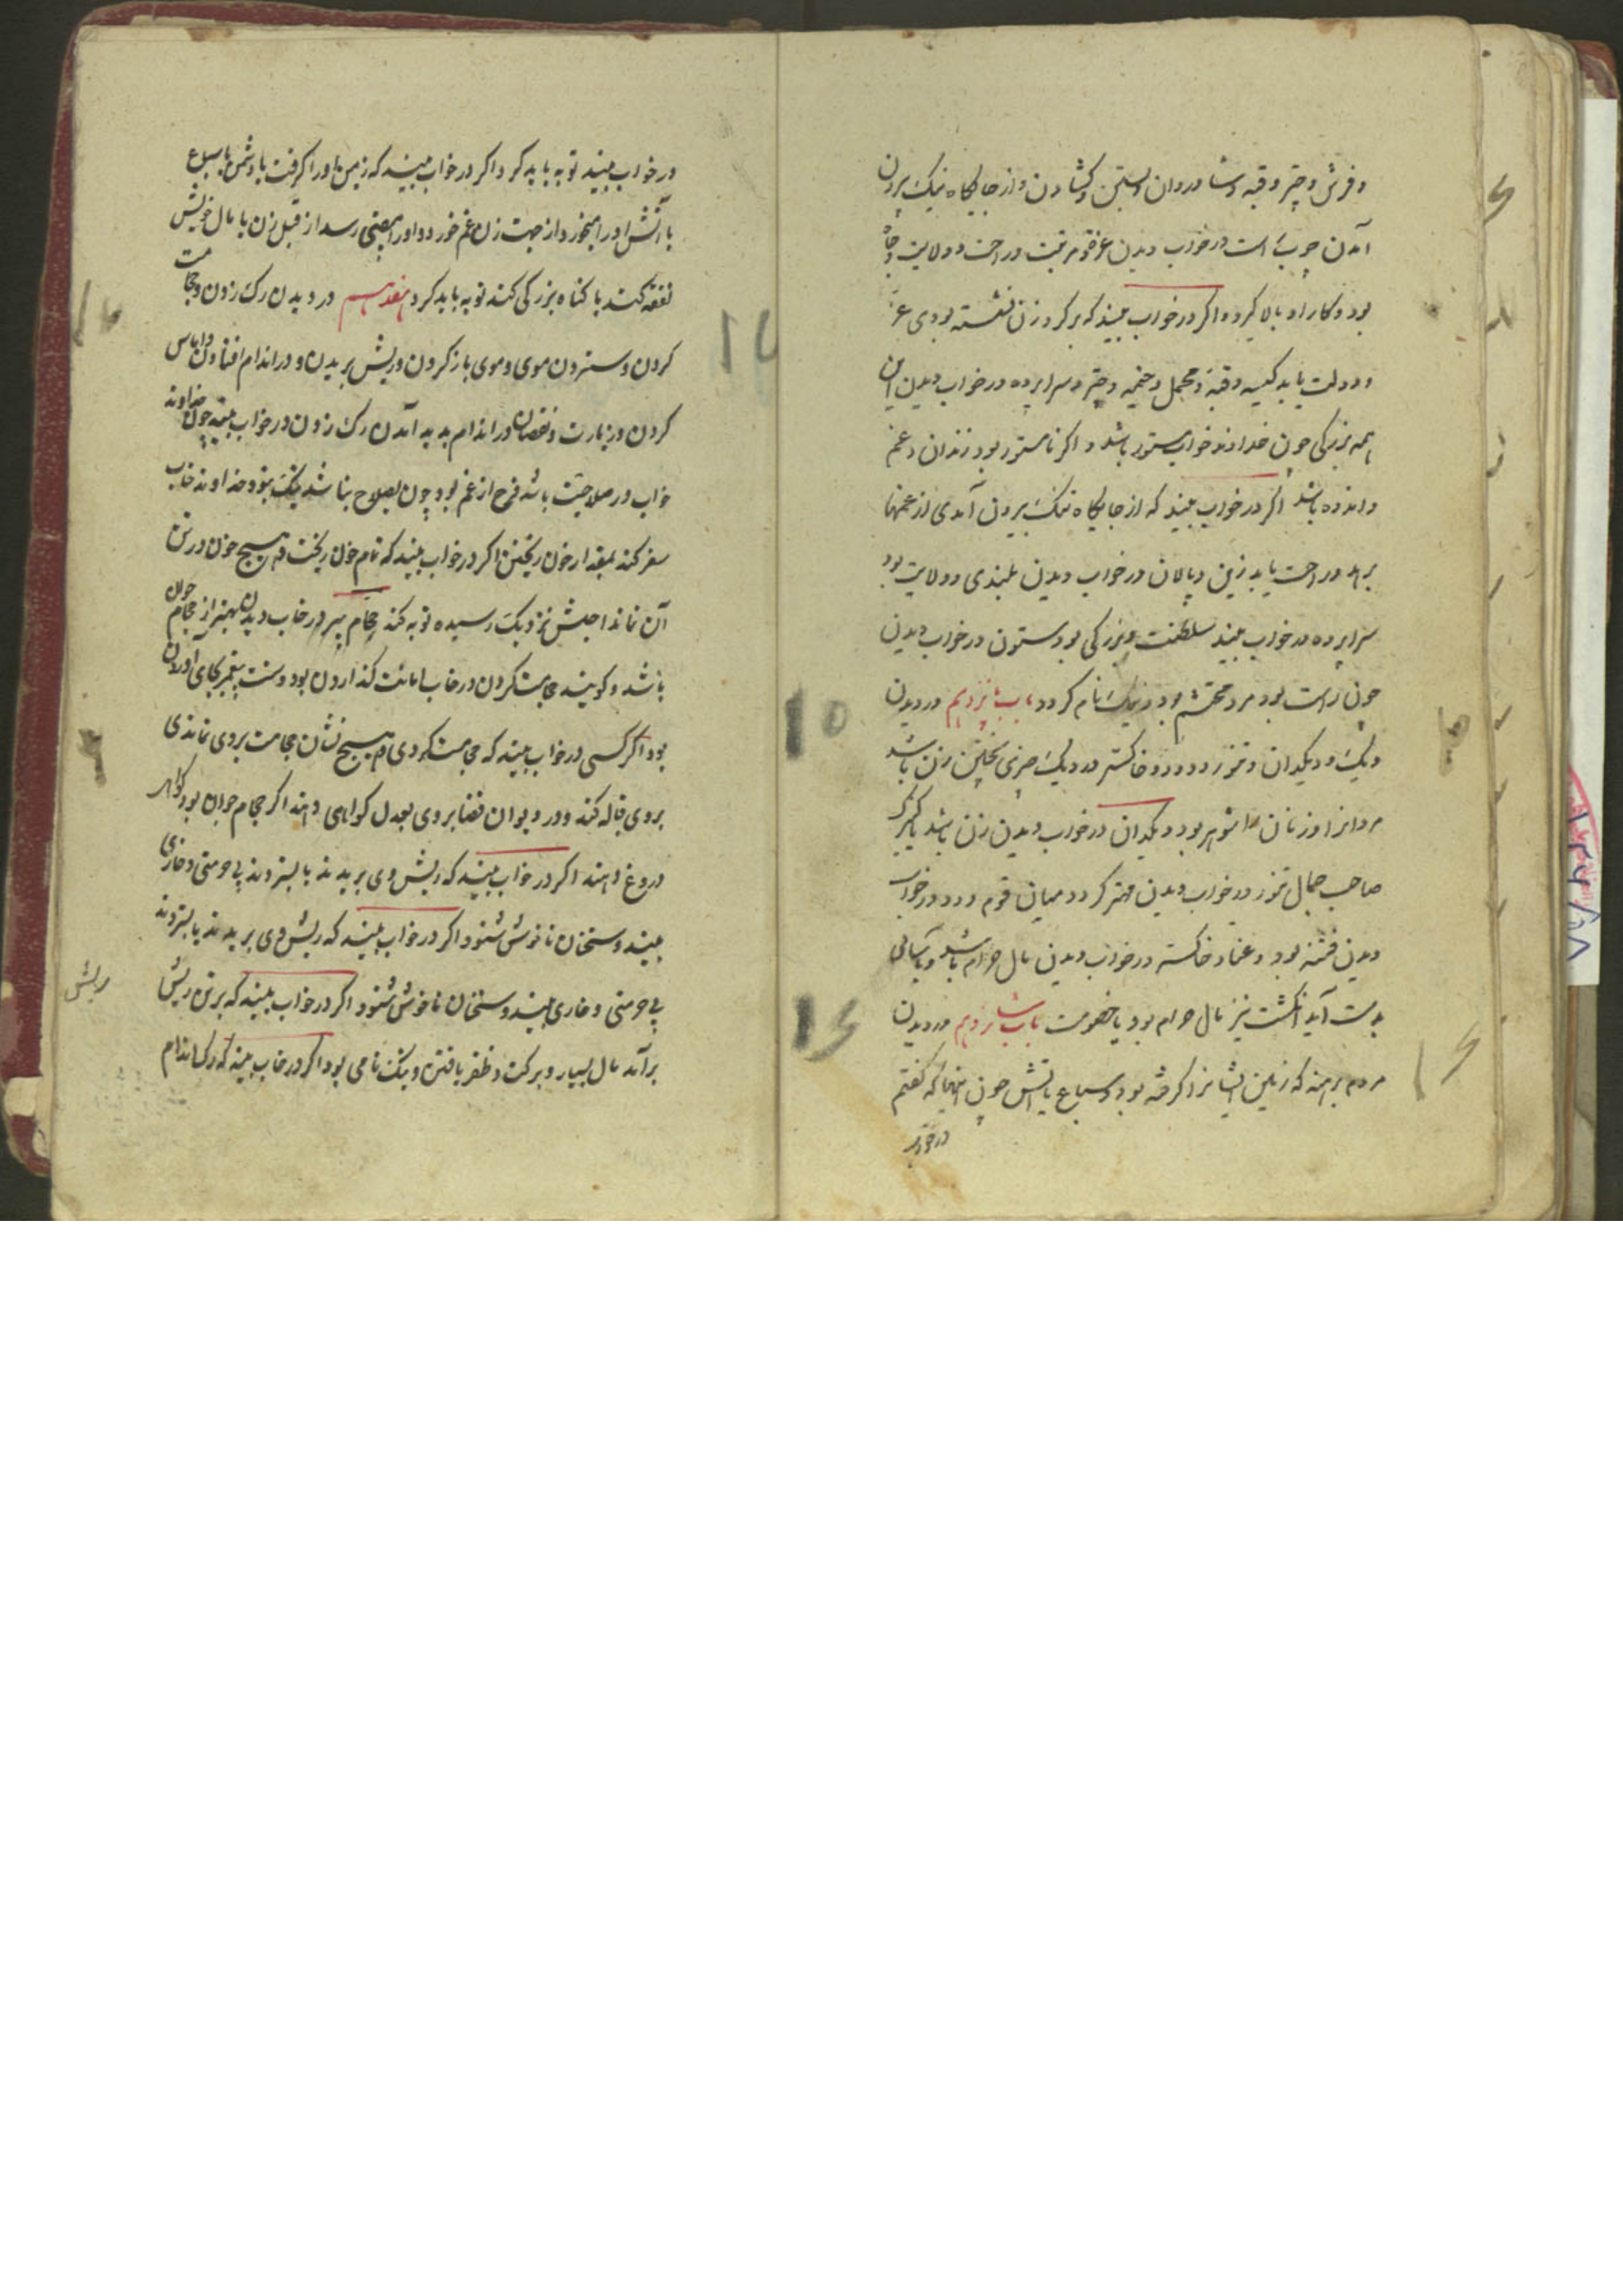 و فرش و چتر و قبه و شادروان و بستن و کشادن و از جایکاه تیک بیرون
آمدن چوب است در خواب دیدن غرفه مرتبت و راحت و ولایت و جاه
بود و کار او بالا کیرد و اکر در خواب بیند که بر کردون نشسته بودی عز
و دولت یابد کیسه و قبه و محمل و خیمه و چتر و سراپرده در خواب دیدن این
همه بزرکی چون خداوند خواب مستور باشد و اکر نامستور بود زندان و غم
و اندوه باشد اکر در خواب بیند که از جایکاه تنک بیرون آمدی از غمها
برهد و راحت یابد زین و پالان در خواب دیدن بلندی و ولایت بود
سراپرده در خواب بیند سلطنت و بزرکی بود ستون در خواب دیدن
چون راست بود مرد محتشم بود و نیک نام کردد باب پانزدهم در دیدن
دیک و دیکدان و تنور و دود و خاکستر و دیک چیزی پختن زن باشد
مردانرا و زنان را شوهر بود دیکدان در خواب دیدن زن باشد یا کنیزک
صاحب جمال تنور در خواب دیدن مهتر کردد میان قوم و دود در خواب
دیدن فتنه بود و عنا و خاکستر در خواب دیدن مال حرام باشد و باسانی
بدست آید انکشت نیز مال حرام بود یا خصومت باب شانزدهم در دیدن
مردم برهنه که زمین ایشانرا کرفته بود و سباع یا آتش چون اینها که کفتم
در خواب
در خواب بیند توبه باید کرد و اکر در خواب بیند که زمین او را کرفت یا دشمن یا سباع
یا آتش او را بخورد از جهت زن غم خورد و او را محنتی رسد از قبل زن یا مال خویش
نفقه کند یا کناه بزرکی کند توبه باید کرد هفدهم در دیدن رک زدن و حجامت
کردن و ستردن موی و موی باز کردن و ریش بریدن و در اندام افتادن و اماس
کردن و زیارت و نقصان در اندام پدید آمدن رک زدن در خواب بیند چون خداوند
خواب در صلاحیت باشد فرح از غم بود چون بصلاح نباشد نیک نبود خداوند خواب
سفر کند بمقدار خون ریختن اکر در خواب بیند که تمام خون ریخت و هیچ خون در تن
آن نماند اجلش نزدیک رسیده توبه کند حجام پیر در خواب دیدن بهتر از حجام جوان
باشد و کویند حجامت کردن در خواب امانت کذاردن بود و سنت پیغمبر بجای اوردن
بود اکر کسی در خواب بیند که حجامت کردی و هیچ نشان حجامت بر وی نماندی
بر وی قباله کند و در دیوان قضا بر وی بعدل کواهی دهند اکر حجام جوان بود کواهی
دروغ دهند اکر در خواب بیند که ریش وی بریدند یا بستردند بی حرمتی و خاری
بیند و سخنان ناخوش شنود اکر در خواب بیند که ریش وی بریدند یا بستردند
بی حرمتی و خاری بیند و سخنان ناخوش شنود اکر در خواب بیند که بر تن ریش
ریش
برآمد مال بسیار و برکت و ظفر یافتن و نیک نامی بود اکر در خواب بیند که رک اندام
۱۵
۱۶